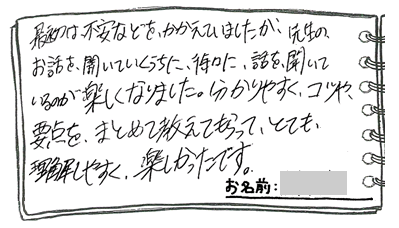 最初は不安などを、かかえていましたが、先生の
お話を、聞いていくうちに、徐々に、話を、聞いて
いるのが楽しくなりました。分かりやすく、コツや、
要点を、まとめて教えてもらって、とても、
理解しやすく、楽しかったです。
お名前: